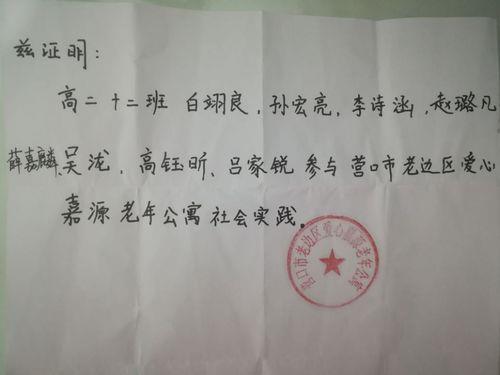 兹证明：
高二十二班 白翊良，孙宏亮，李诗涵，赵璐凡
薛嘉麟、吴泷，高钰昕、吕家锐 参与 营口市老边区爱心
嘉源老年公寓 社会实践。
营口市老边区爱心嘉源老年公寓